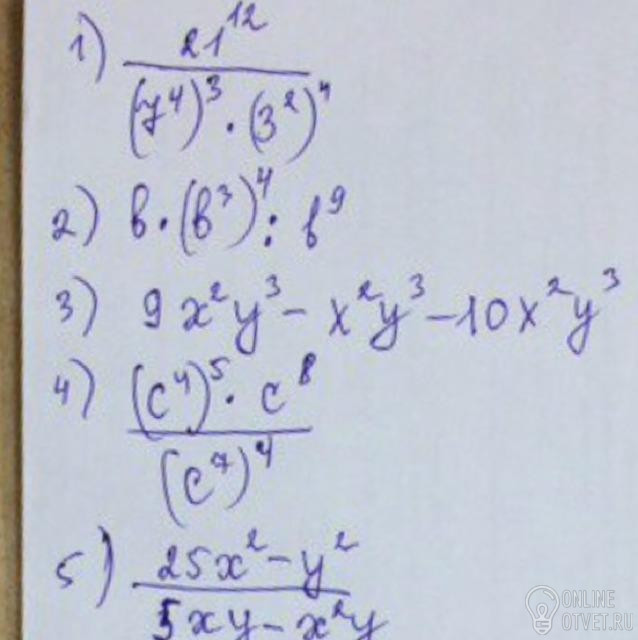 1) 21^12 / (y^4)^3 · (3^2)^4
2) b · (b^3)^4 : b^9
3) 9x^2y^3 - x^2y^3 - 10x^2y^3
4) (c^4)^5 · c^8 / (c^7)^4
5) 25x^2 - y^2 / 5xy - x^2y
ONLINE
OTVET.RU